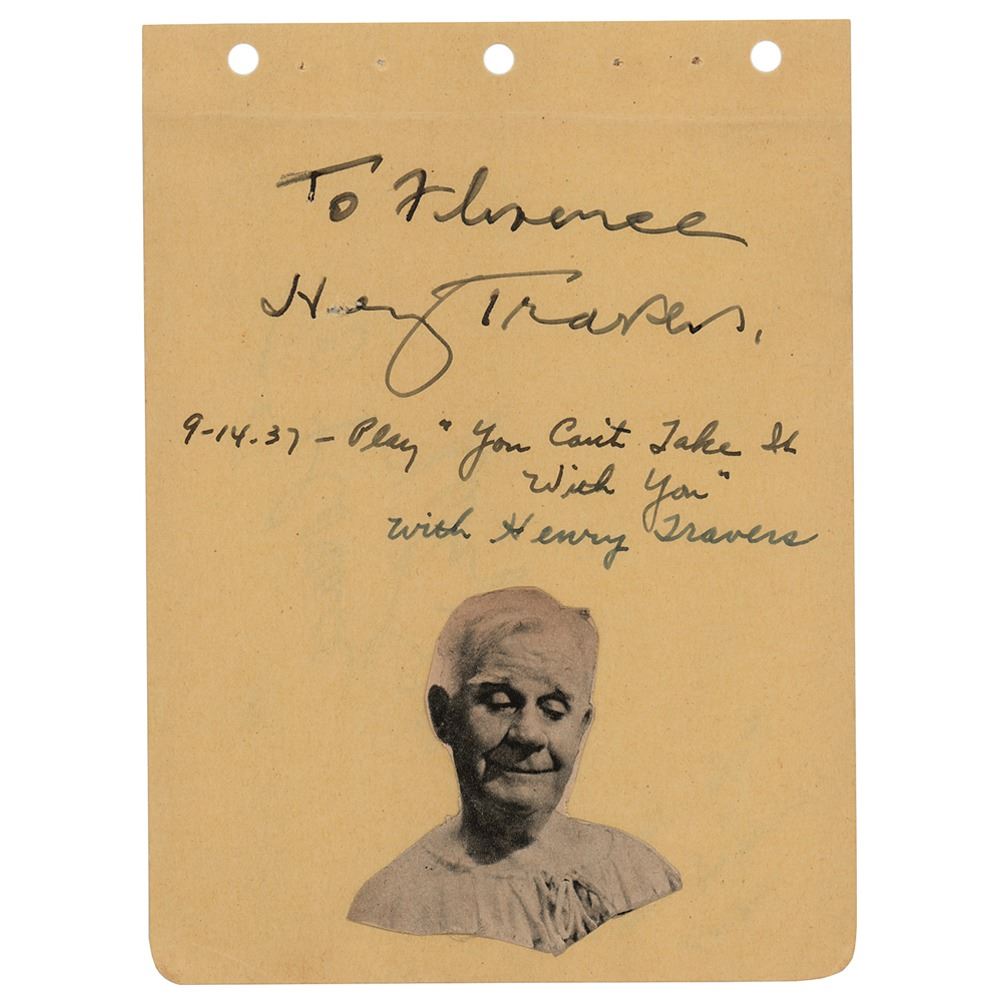 To Florence
Henry Travers.
9-14-37 - Play "You Can't Take It
With You"
with Henry Travers